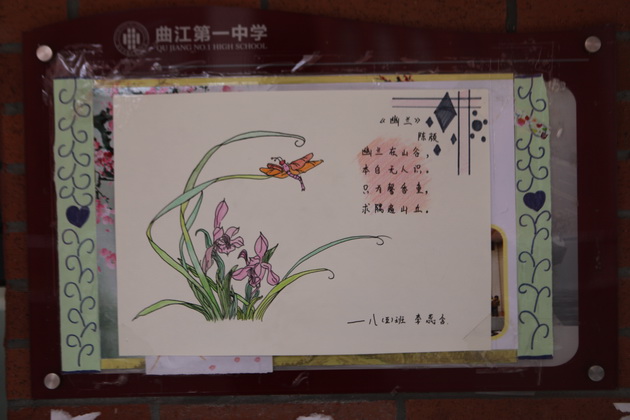 曲江第一中学
QU JIANG NO.1 HIGH SCHOOL
《幽兰》
陈毅
幽兰在山谷，
本自无人识。
只为馨香重，
求隅遍山丘。
——八(五)班 李蕊含